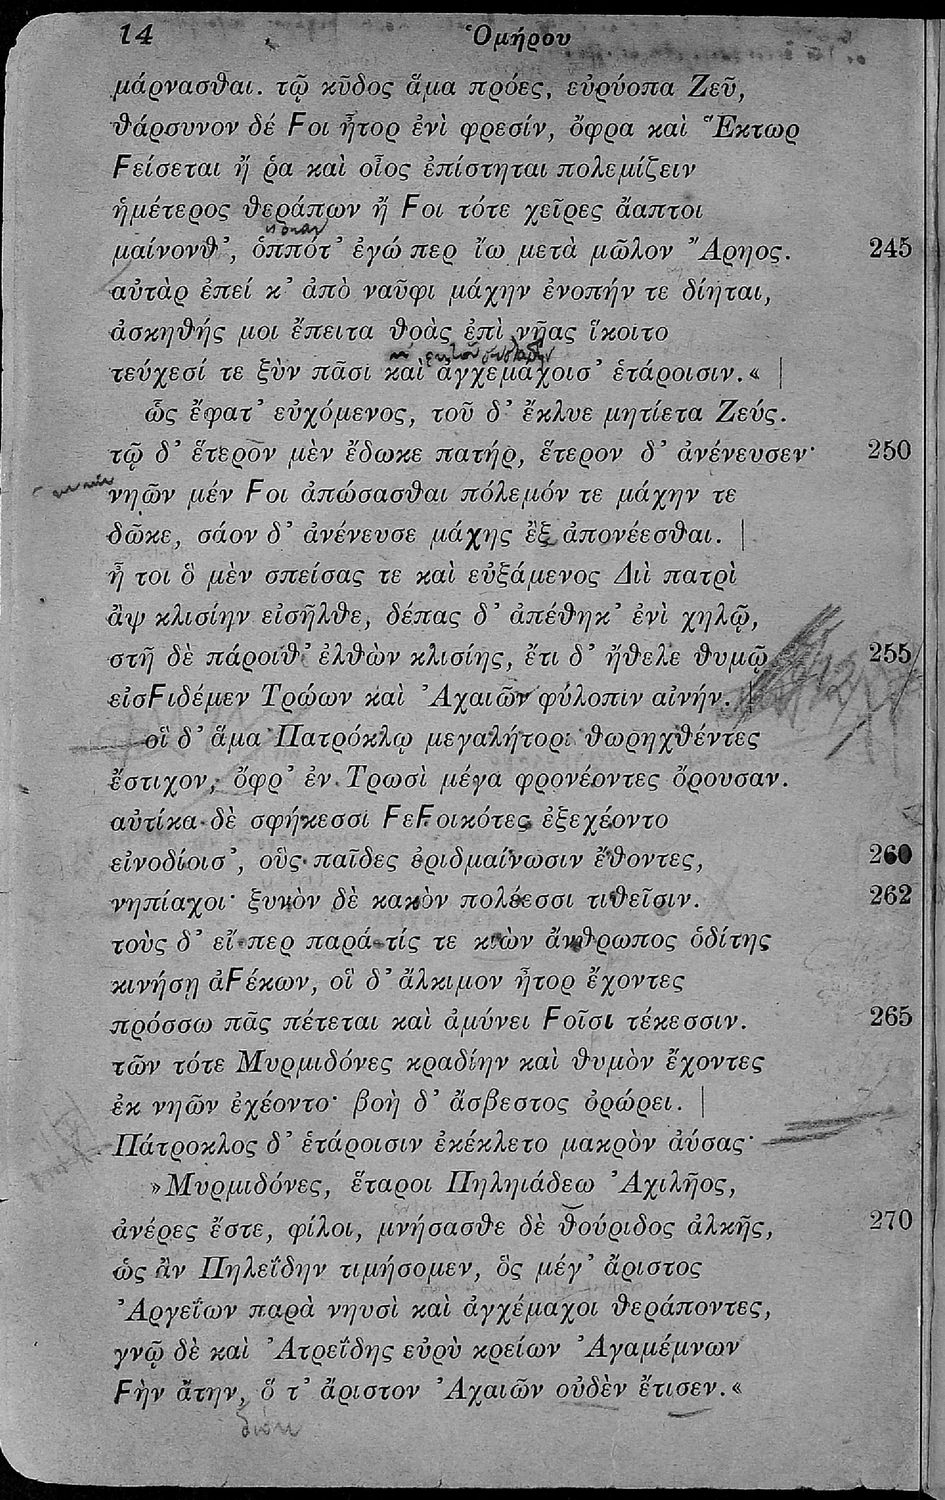 14 Ὁμήρου
μάρνασθαι. τῷ κῦδος ἅμα πρόες, εὐρύοπα Ζεῦ,
θάρσυνον δέ Ϝοι ἦτορ ἐνὶ φρεσίν, ὄφρα καὶ Ἕκτωρ
Ϝείσεται ἤ ῥα καὶ οἶος ἐπίστηται πολεμίζειν
ἡμέτερος θεράπων ἤ Ϝοι τότε χεῖρες ἄαπτοι
μαίνονθ', ὁππότ' ἐγώ περ ἴω μετὰ μῶλον Ἄρηος. 245
αὐτὰρ ἐπεί κ' ἀπὸ ναῦφι μάχην ἐνοπήν τε δίηται,
ἀσκηθής μοι ἔπειτα θοὰς ἐπὶ νῆας ἵκοιτο
τεύχεσί τε ξὺν πᾶσι καὶ ἀγχεμάχοισ' ἑτάροισιν.« |
ὣς ἔφατ' εὐχόμενος, τοῦ δ' ἔκλυε μητίετα Ζεύς.
τῷ δ' ἕτερον μὲν ἔδωκε πατήρ, ἕτερον δ' ἀνένευσεν· 250
νηῶν μέν Ϝοι ἀπώσασθαι πόλεμόν τε μάχην τε
δῶκε, σάον δ' ἀνένευσε μάχης ἒξ ἀπονέεσθαι. |
ἦ τοι ὃ μὲν σπείσας τε καὶ εὐξάμενος Διὶ πατρὶ
ἂψ κλισίην εἰσῆλθε, δέπας δ' ἀπέθηκ' ἐνὶ χηλῷ,
στῆ δὲ πάροιθ' ἐλθὼν κλισίης, ἔτι δ' ἤθελε θυμῷ 255
εἰσϜιδέμεν Τρώων καὶ Ἀχαιῶν φύλοπιν αἰνήν. |
οἳ δ' ἅμα Πατρόκλῳ μεγαλήτορι θωρηχθέντες
ἔστιχον, ὄφρ' ἐν Τρωσὶ μέγα φρονέοντες ὄρουσαν.
αὐτίκα δὲ σφήκεσσι ϜεϜοικότες ἐξεχέοντο
εἰνοδίοισ', οὓς παῖδες ἐριδμαίνωσιν ἔθοντες, 260
νηπίαχοι· ξυνὸν δὲ κακὸν πολέεσσι τιθεῖσιν. 262
τοὺς δ' εἴ περ παρά τίς τε κιὼν ἄνθρωπος ὁδίτης
κινήσῃ ἀϜέκων, οἳ δ' ἄλκιμον ἦτορ ἔχοντες
πρόσσω πᾶς πέτεται καὶ ἀμύνει Ϝοῖσι τέκεσσιν. 265
τῶν τότε Μυρμιδόνες κραδίην καὶ θυμὸν ἔχοντες
ἐκ νηῶν ἐχέοντο· βοὴ δ' ἄσβεστος ὀρώρει. |
Πάτροκλος δ' ἑτάροισιν ἐκέκλετο μακρὸν ἀύσας·
»Μυρμιδόνες, ἕταροι Πηληιάδεω Ἀχιλῆος,
ἀνέρες ἔστε, φίλοι, μνήσασθε δὲ θούριδος ἀλκῆς, 270
ὡς ἂν Πηλεΐδην τιμήσομεν, ὃς μέγ' ἄριστος
Ἀργεΐων παρὰ νηυσὶ καὶ ἀγχέμαχοι θεράποντες,
γνῷ δὲ καὶ Ἀτρεΐδης εὐρὺ κρείων Ἀγαμέμνων
Ϝὴν ἄτην, ὅ τ' ἄριστον Ἀχαιῶν οὐδὲν ἔτισεν.«